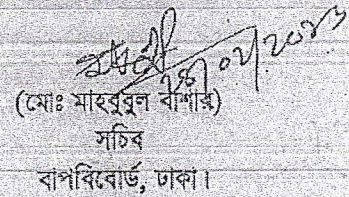 (মোঃ মাহবুবুল বাশার)
সচিব
বাপবিবোর্ড, ঢাকা।